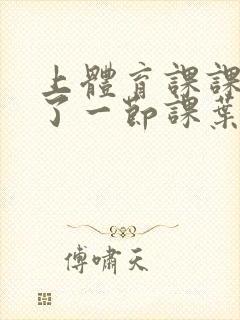 上體育課課
了一節課葉
傅嘯天